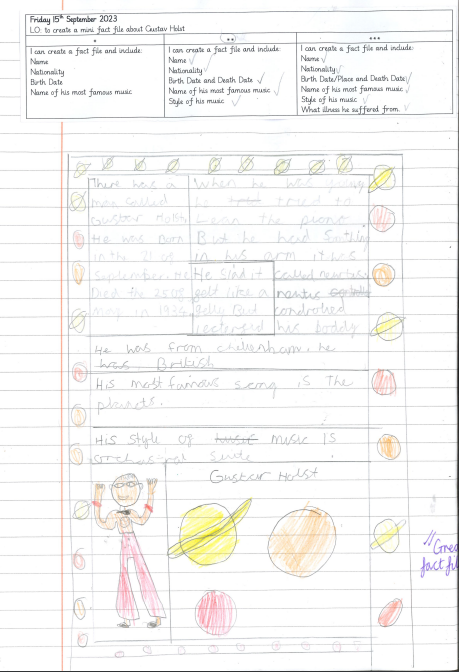 Friday 15th September 2023
LO: to create a mini fact file about Gustav Holst
*
I can create a fact file and include:
Name
Nationality
Birth Date
Name of his most famous music
**
I can create a fact file and include:
Name
Nationality
Birth Date and Death Date
Name of his most famous music
Style of his music
***
I can create a fact file and include:
Name
Nationality
Birth Date/Place and Death Date
Name of his most famous music
Style of his music
What illness he suffered from.
There was a
man called
Gustav Holst.
He was Born
in the 21 of
September. He
Died the 25 of
may in 1934
When he was young
he tried to
Lean the piano.
But he had
in his arm it was
He it
like a
Jelly But
his boddy
He was from chelenham. he
was British
His most famous song is the
planets.
His style of music is
Gustav Holst
// Grea
fact fil